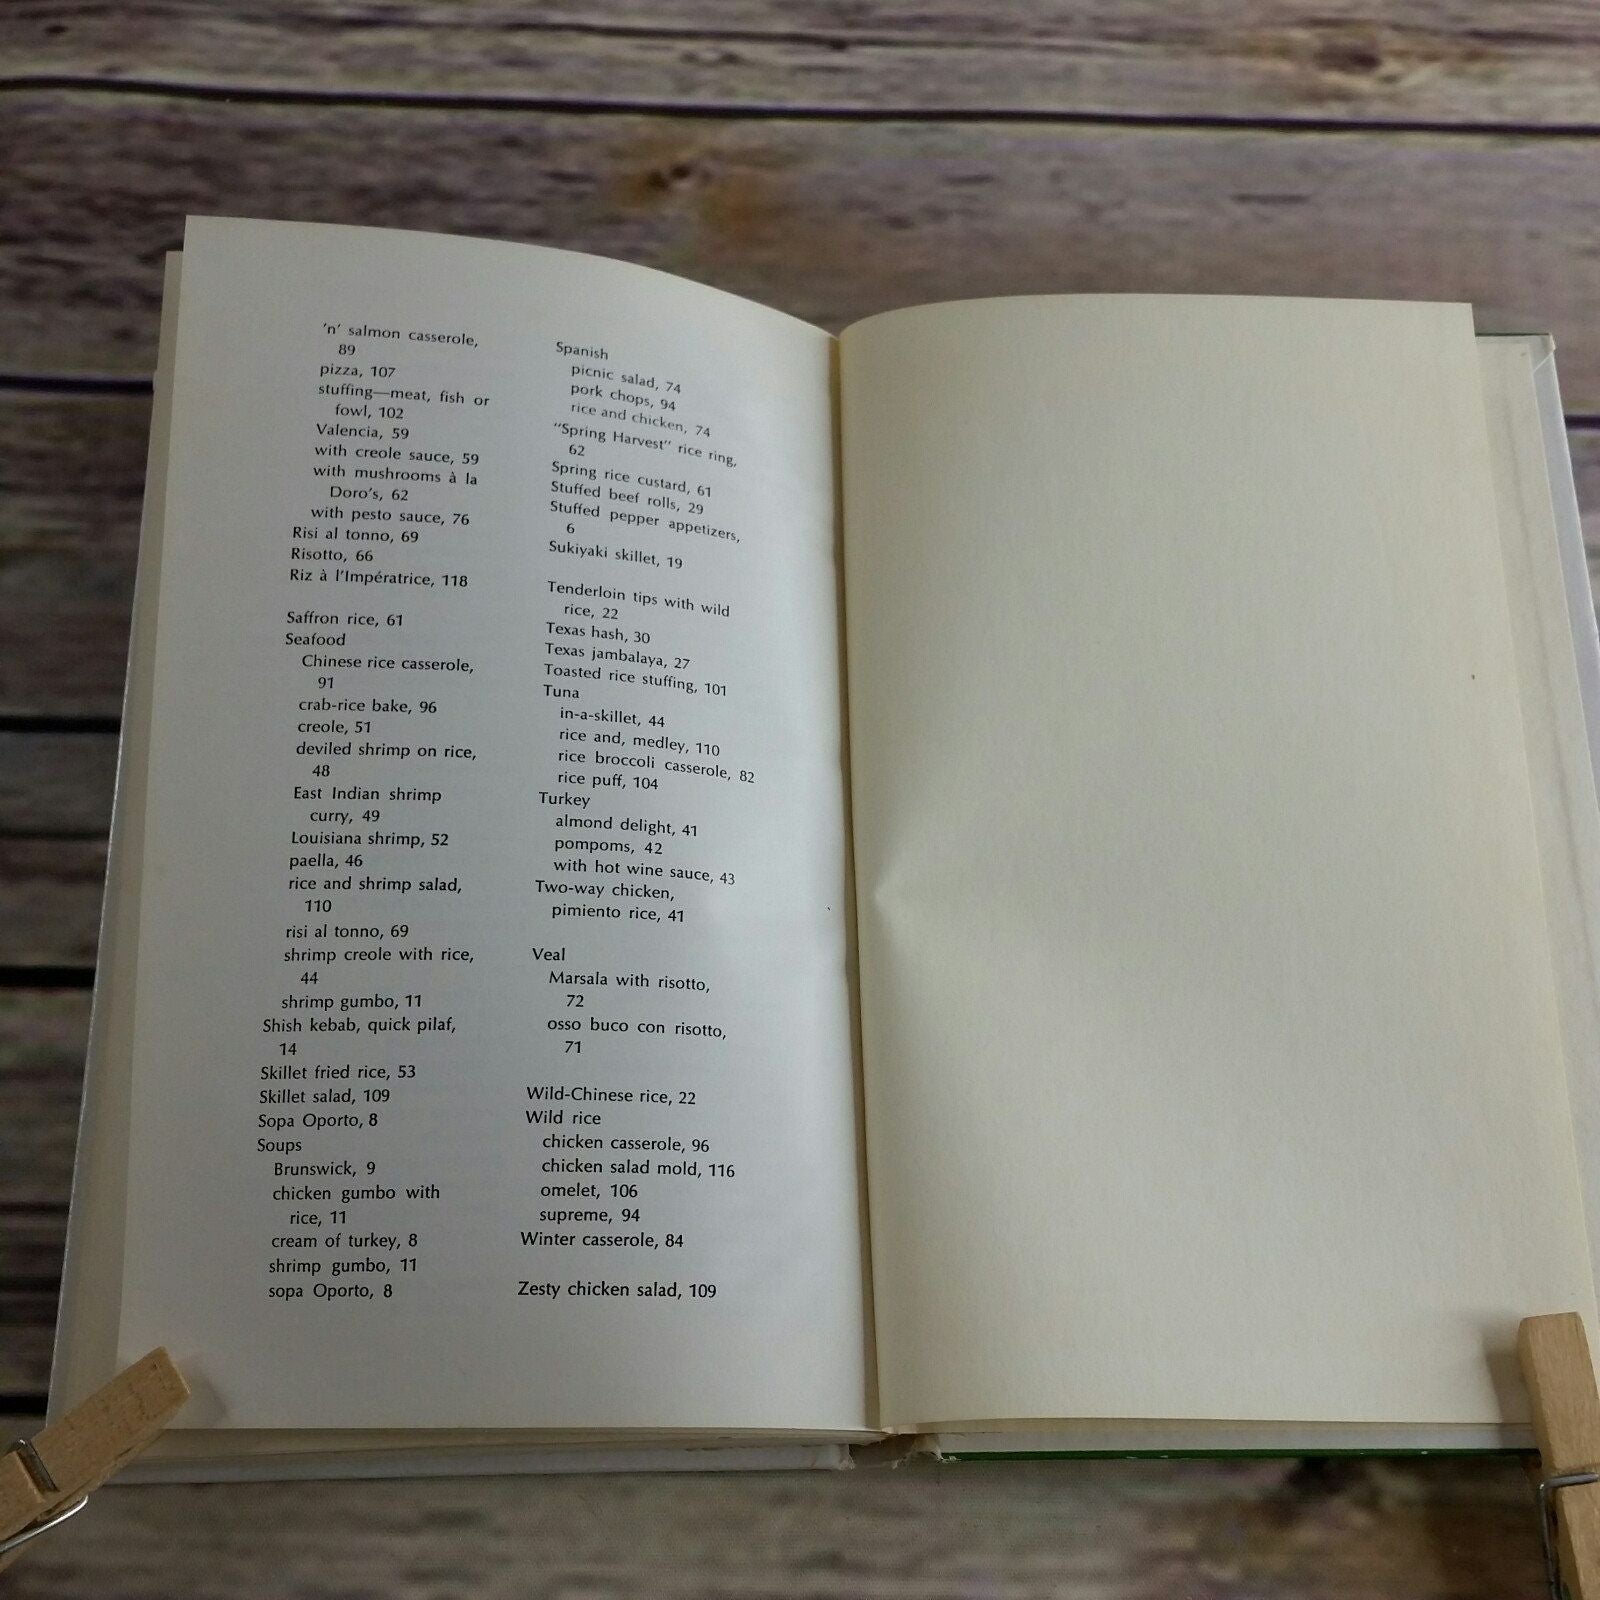 'n' salmon casserole,
89
pizza, 107
stuffing—meat, fish or
fowl, 102
Valencia, 59
with creole sauce, 59
with mushrooms à la
Doro's, 62
with pesto sauce, 76
Risi al tonno, 69
Risotto, 66
Riz à l'Impératrice, 118
Saffron rice, 61
Seafood
Chinese rice casserole,
91
crab-rice bake, 96
creole, 51
deviled shrimp on rice,
48
East Indian shrimp
curry, 49
Louisiana shrimp, 52
paella, 46
rice and shrimp salad,
110
risi al tonno, 69
shrimp creole with rice,
44
shrimp gumbo, 11
Shish kebab, quick pilaf,
14
Skillet fried rice, 53
Skillet salad, 109
Sopa Oporto, 8
Soups
Brunswick, 9
chicken gumbo with
rice, 11
cream of turkey, 8
shrimp gumbo, 11
sopa Oporto, 8
Spanish
picnic salad, 74
pork chops, 94
rice and chicken, 74
"Spring Harvest" rice ring,
62
Spring rice custard, 61
Stuffed beef rolls, 29
Stuffed pepper appetizers,
6
Sukiyaki skillet, 19
Tenderloin tips with wild
rice, 22
Texas hash, 30
Texas jambalaya, 27
Toasted rice stuffing, 101
Tuna
in-a-skillet, 44
rice and, medley, 110
rice broccoli casserole, 82
rice puff, 104
Turkey
almond delight, 41
pompoms, 42
with hot wine sauce, 43
Two-way chicken,
pimiento rice, 41
Veal
Marsala with risotto,
72
osso buco con risotto,
71
Wild-Chinese rice, 22
Wild rice
chicken casserole, 96
chicken salad mold, 116
omelet, 106
supreme, 94
Winter casserole, 84
Zesty chicken salad, 109